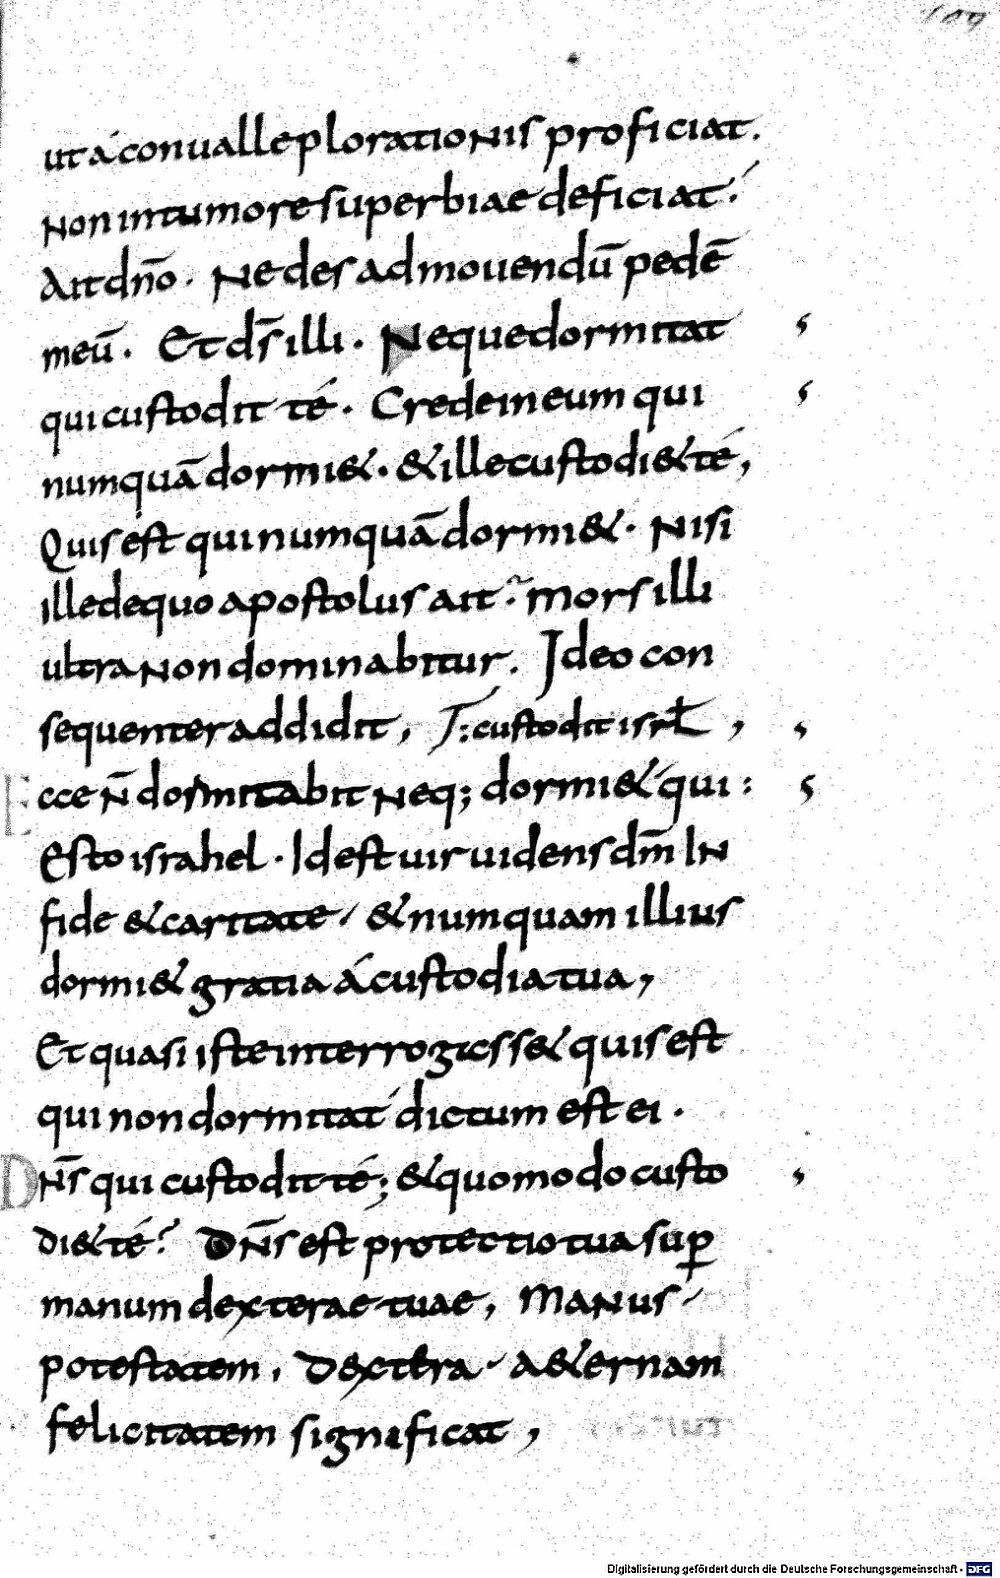 109
ut á conualle plorationis proficiat.
Non in tumore superbiae deficiat.
Ait dño. Ne des ad mouendū pedē
meū. Et dr̄ illi. Neque dormitat
qui custodit té. Crede in eum qui
numquā dormi&. & ille custodi& té,
Quis est qui numquā dormi&. Nisi
ille de quo apostolus ait. mors illi
ultra non dominabitur. Ideo con
sequenter addidit, custodit isrł,
Ecce n̄ dormitabit neq; dormi& qui:
Esto israhel. Id est uir uidens dm̄ In
fide & caritate & numquam illius
dormi& gratia á custodia tua,
Et quasi iste interrogass& quis est
qui non dormitat dictum est ei.
Dn̄s qui custodit té; & quomodo custo
di& té? Dn̄s est protectio tua sup̱
manum dexterae tuae, Manus
potestatem, Dextera a&ernam
felicitatem significat,
Digitalisierung gefördert durch die Deutsche Forschungsgemeinschaft - DFG